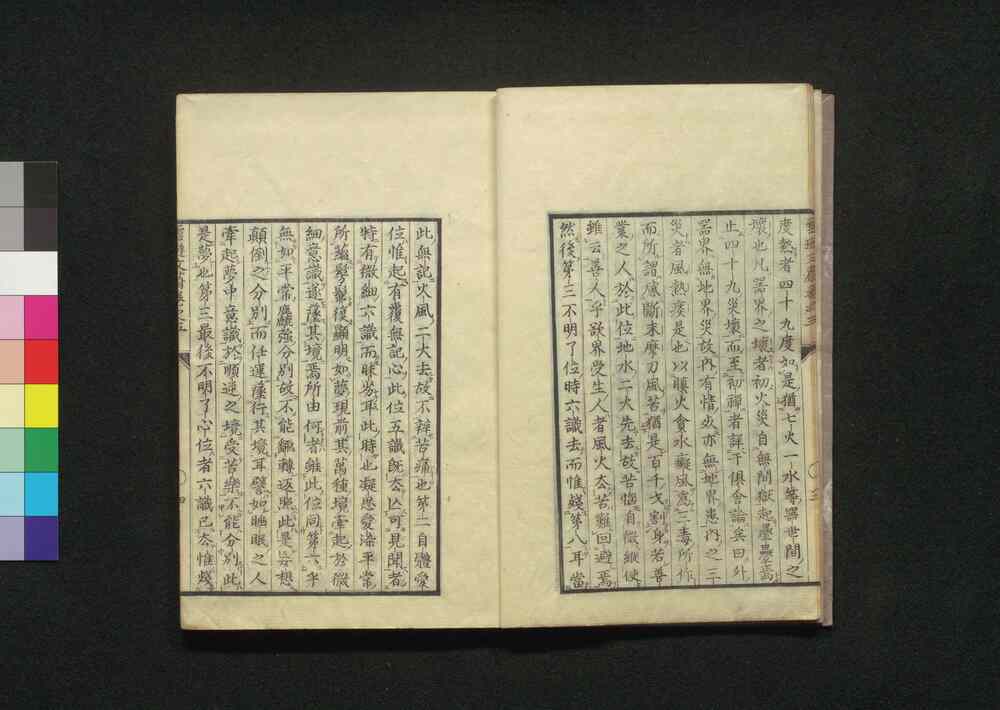 度熱者四十九度如是猶七火一水等器世間之
壞也凡器界之壞者初火災自無間獄起墨蟲焉
止四十九災壞而至初禪者詳于俱舍論矣曰外
器界無地界災故内有情亦無地界患内之三
災者風熱痰是也以瞋火貪水癡風爲三毒所作
而所謂感斷末摩刀風苦猶是百千戈割身若善
業之人於此位地水二大先去故苦惱自微縱使
雖云善人乎欲界受生人者風火太苦難回避焉
然後第三不明了位時六識去而惟殘第八耳當
此無記火風二大去故不辨苦痛也第二自體愛
位惟起有覆無記心此位五識既去亡可見聞者
特有微細六識而昧劣耳此時也凝思愛染平常
所蘊髣髴後顯明如夢現前其萬種境牽起於微
細意識逐緣其境焉所由何者雖此位同第六乎
無如平常麤強分別故不能翻轉返照此是妄想
顛倒之分別而任運緣行其境耳譬如睡眠之人
牽起夢中意識於順逆之境受苦樂不能分別此
是夢也第三最後不明了心位者六識已去惟殘